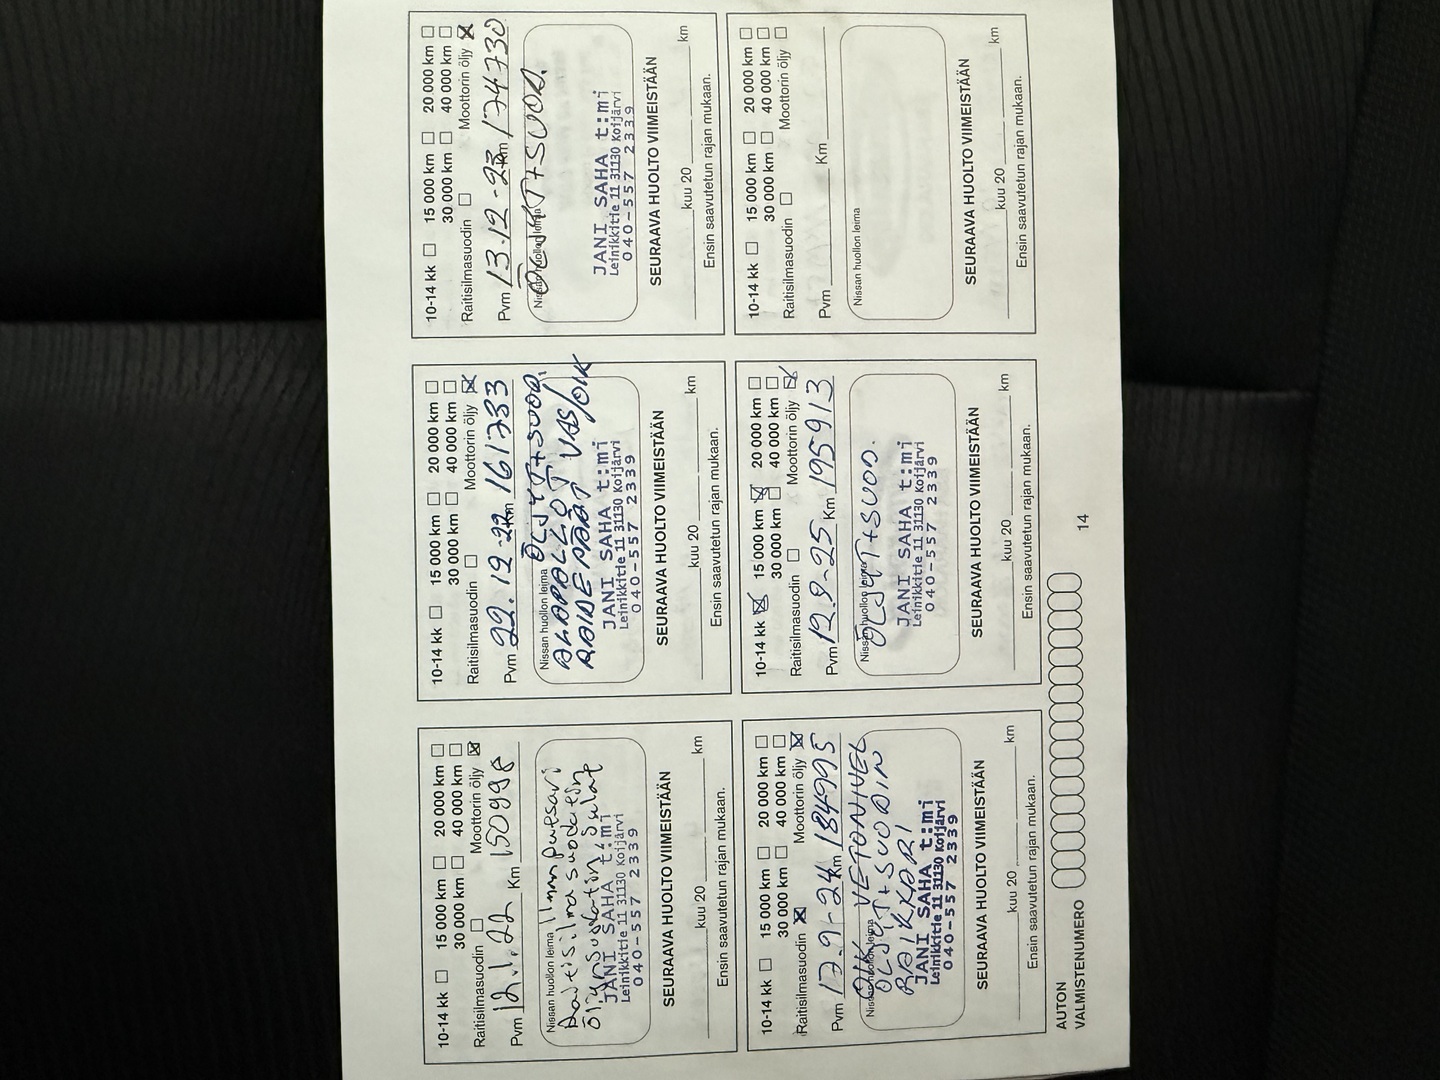 10-14 kk 15 000 km 20 000 km
30 000 km 40 000 km
Raitisilmasuodin Moottorin öljy
Pvm 12.1.22 Km 150998
Nissan huollon leima Ilmanputsari
Raitisilmasuodatin
öljynsuodatin, Sulat
JANI SAHA t:mi
Leinikkitie 11 31130 Koijärvi
040-557 2339
SEURAAVA HUOLTO VIIMEISTÄÄN
kuu 20 km
Ensin saavutetun rajan mukaan.
10-14 kk 15 000 km 20 000 km
30 000 km 40 000 km
Raitisilmasuodin Moottorin öljy
Pvm 22.12-22 Km 161733
Nissan huollon leima ÖLJYT+SUOD,
ALAPALLOT VAS/OIK
RAIDEPÄÄT
JANI SAHA t:mi
Leinikkitie 11 31130 Koijärvi
040-557 2339
SEURAAVA HUOLTO VIIMEISTÄÄN
kuu 20 km
Ensin saavutetun rajan mukaan.
10-14 kk 15 000 km 20 000 km
30 000 km 40 000 km
Raitisilmasuodin Moottorin öljy
Pvm 13.12-23 Km 174730
Nissan huollon leima
ÖLJYT+SUOD.
JANI SAHA t:mi
Leinikkitie 11 31130 Koijärvi
040-557 2339
SEURAAVA HUOLTO VIIMEISTÄÄN
kuu 20 km
Ensin saavutetun rajan mukaan.
10-14 kk 15 000 km 20 000 km
30 000 km 40 000 km
Raitisilmasuodin Moottorin öljy
Pvm 17.9-24 Km 184995
Nissan huollon leima
OIK VETONIVEL
ÖLJYT+SUODIN
RAIKKARI
JANI SAHA t:mi
Leinikkitie 11 31130 Koijärvi
040-557 2339
SEURAAVA HUOLTO VIIMEISTÄÄN
kuu 20 km
Ensin saavutetun rajan mukaan.
10-14 kk 15 000 km 20 000 km
30 000 km 40 000 km
Raitisilmasuodin Moottorin öljy
Pvm 12.9-25 Km 195913
Nissan huollon leima
ÖLJYT+SUOD.
JANI SAHA t:mi
Leinikkitie 11 31130 Koijärvi
040-557 2339
SEURAAVA HUOLTO VIIMEISTÄÄN
kuu 20 km
Ensin saavutetun rajan mukaan.
10-14 kk 15 000 km 20 000 km
30 000 km 40 000 km
Raitisilmasuodin Moottorin öljy
Pvm Km
Nissan huollon leima
SEURAAVA HUOLTO VIIMEISTÄÄN
kuu 20 km
Ensin saavutetun rajan mukaan.
AUTON
VALMISTENUMERO
14